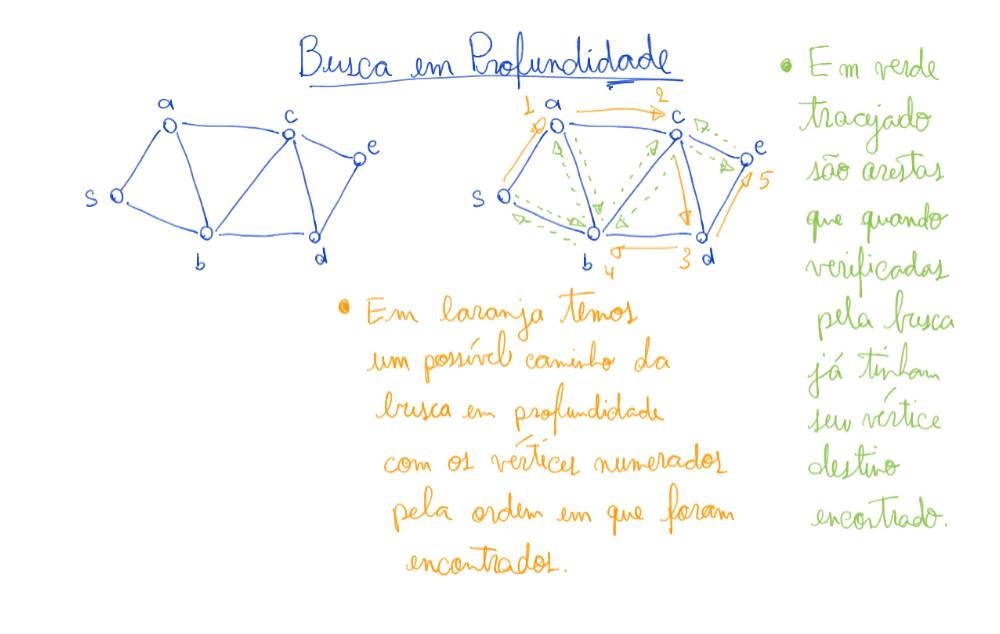 Busca em Profundidade
a
c
e
s
b
d
1
a
2
c
e
5
s
b
4
3
d
• Em laranja temos
um possível caminho da
busca em profundidade
com os vértices numerados
pela ordem em que foram
encontrados.
• Em verde
tracejado
são arestas
que quando
verificadas
pela busca
já tinham
seu vértice
destino
encontrado.